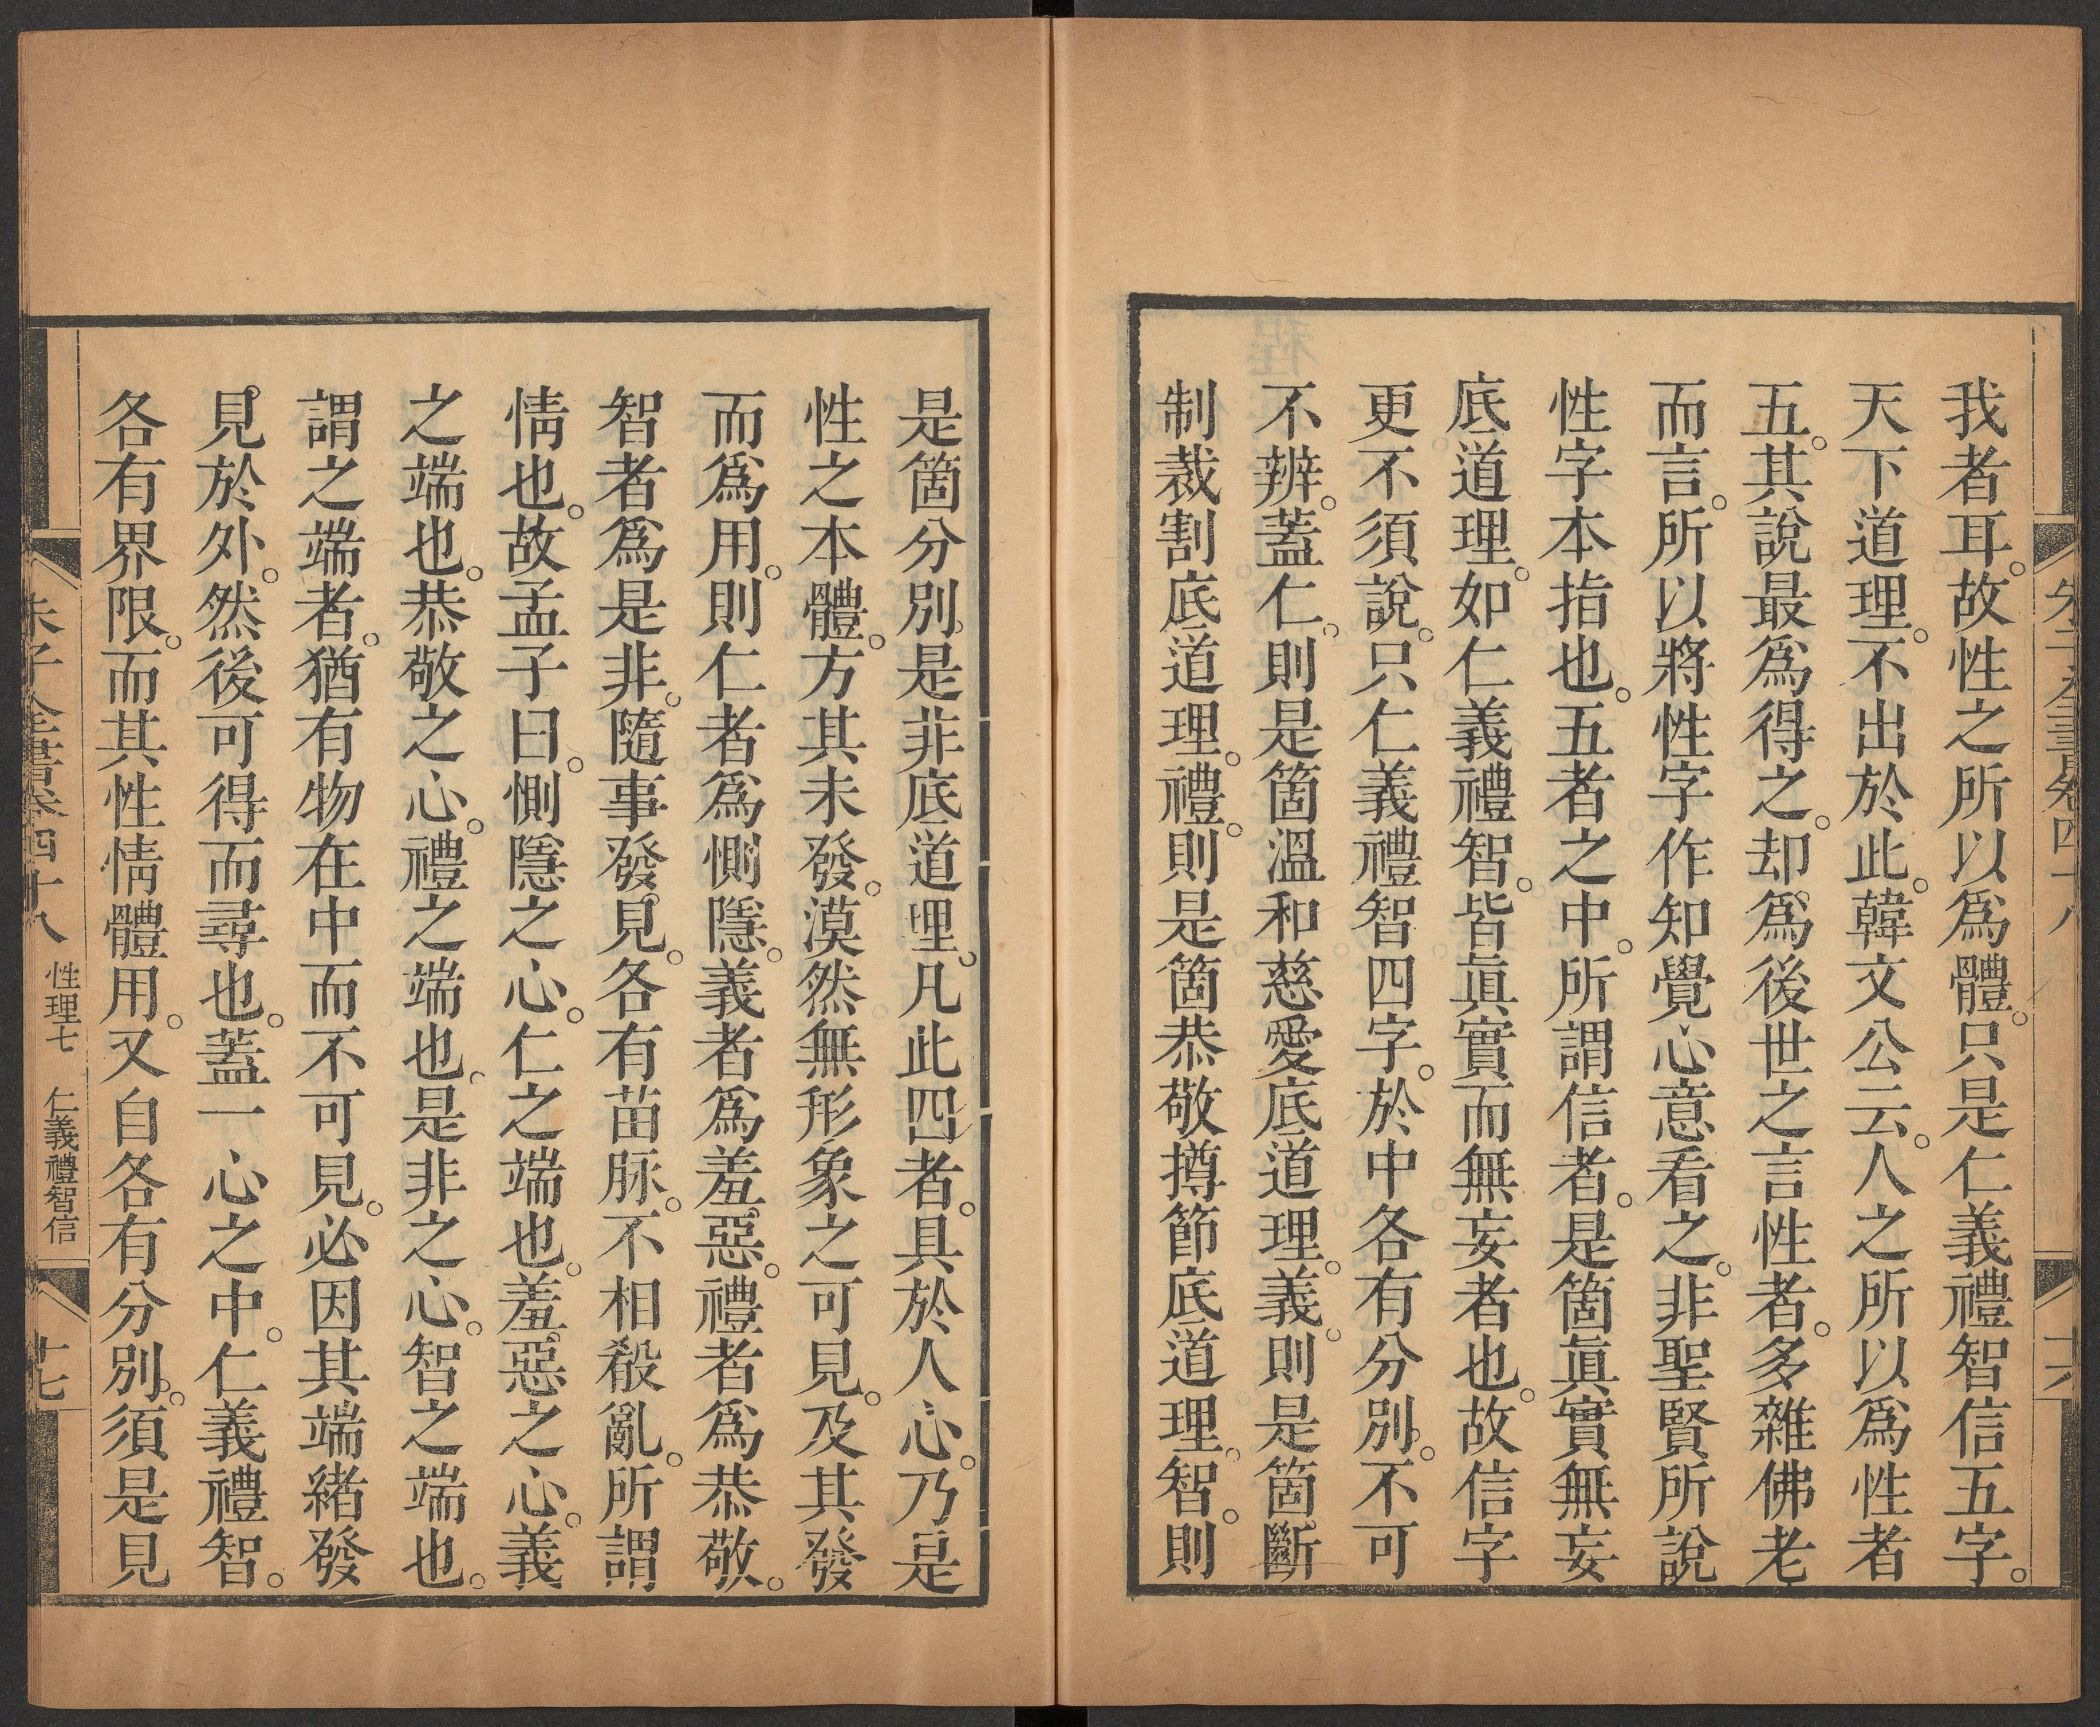 我者耳。故性之所以爲體。只是仁義禮智信五字。
天下道理。不出於此。韓文公云。人之所以爲性者
五。其說最爲得之。却爲後世之言性者。多雜佛老
而言。所以將性字作知覺心意看之。非聖賢所說
性字本指也。五者之中。所謂信者。是箇眞實無妄
底道理。如仁義禮智。皆眞實而無妄者也。故信字
更不須說。只仁義禮智四字。於中各有分別。不可
不辨。蓋仁。則是箇溫和慈愛底道理。義。則是箇斷
制裁割底道理。禮。則是箇恭敬撙節底道理。智。則
是箇分別是非底道理。凡此四者。具於人心。乃是
性之本體。方其未發。漠然無形象之可見。及其發
而爲用。則仁者爲惻隱。義者爲羞惡。禮者爲恭敬。
智者爲是非。隨事發見。各有苗脉。不相殽亂。所謂
情也。故孟子曰。惻隱之心。仁之端也。羞惡之心。義
之端也。恭敬之心。禮之端也。是非之心。智之端也。
謂之端者。猶有物在中而不可見。必因其端緒發
見於外。然後可得而尋也。蓋一心之中。仁義禮智。
各有界限。而其性情體用。又自各有分別。須是見
朱子全書卷四十八 性理七 仁義禮智信 十七